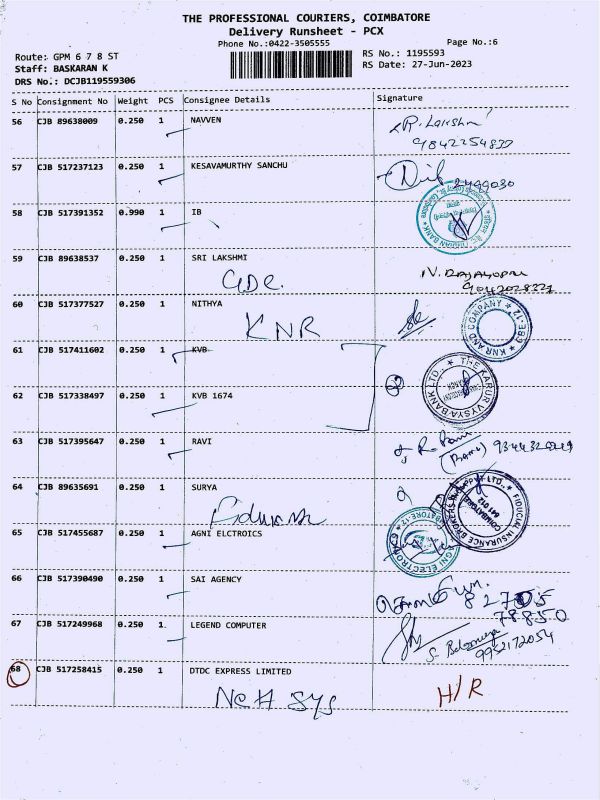 THE PROFESSIONAL COURIERS, COIMBATORE
Delivery Runsheet - PCX
Phone No.:0422-3505555
Page No.:6
Route: GPM 6 7 8 ST
RS No.: 1195593
Staff: BASKARAN K
RS Date: 27-Jun-2023
DRS No.: DCJB119559306
S No Consignment No Weight PCS Consignee Details Signature
56 CJB 89638009 0.250 1 NAVVEN
57 CJB 517237123 0.250 1 KESAVAMURTHY SANCHU
2499030
58 CJB 517391352 0.990 1 IB
59 CJB 89638537 0.250 1 SRI LAKSHMI
GDC.
60 CJB 517377527 0.250 1 NITHYA
KNR
KNR AND COMPANY * CBE-12 *
61 CJB 517411602 0.250 1 KVB
THE KARUR VYSYA BANK LTD.
62 CJB 517338497 0.250 1 KVB 1674
63 CJB 517395647 0.250 1 RAVI
64 CJB 89635691 0.250 1 SURYA
FIDUCIAL INSURANCE BROKERS
COIMBATORE
641 012
65 CJB 517455687 0.250 1 AGNI ELCTROICS
AGNI ELECTRONICS
66 CJB 517390490 0.250 1 SAI AGENCY
82705
78850
67 CJB 517249968 0.250 1. LEGEND COMPUTER
9952172054
68 CJB 517258415 0.250 1 DTDC EXPRESS LIMITED
Sys
H/R